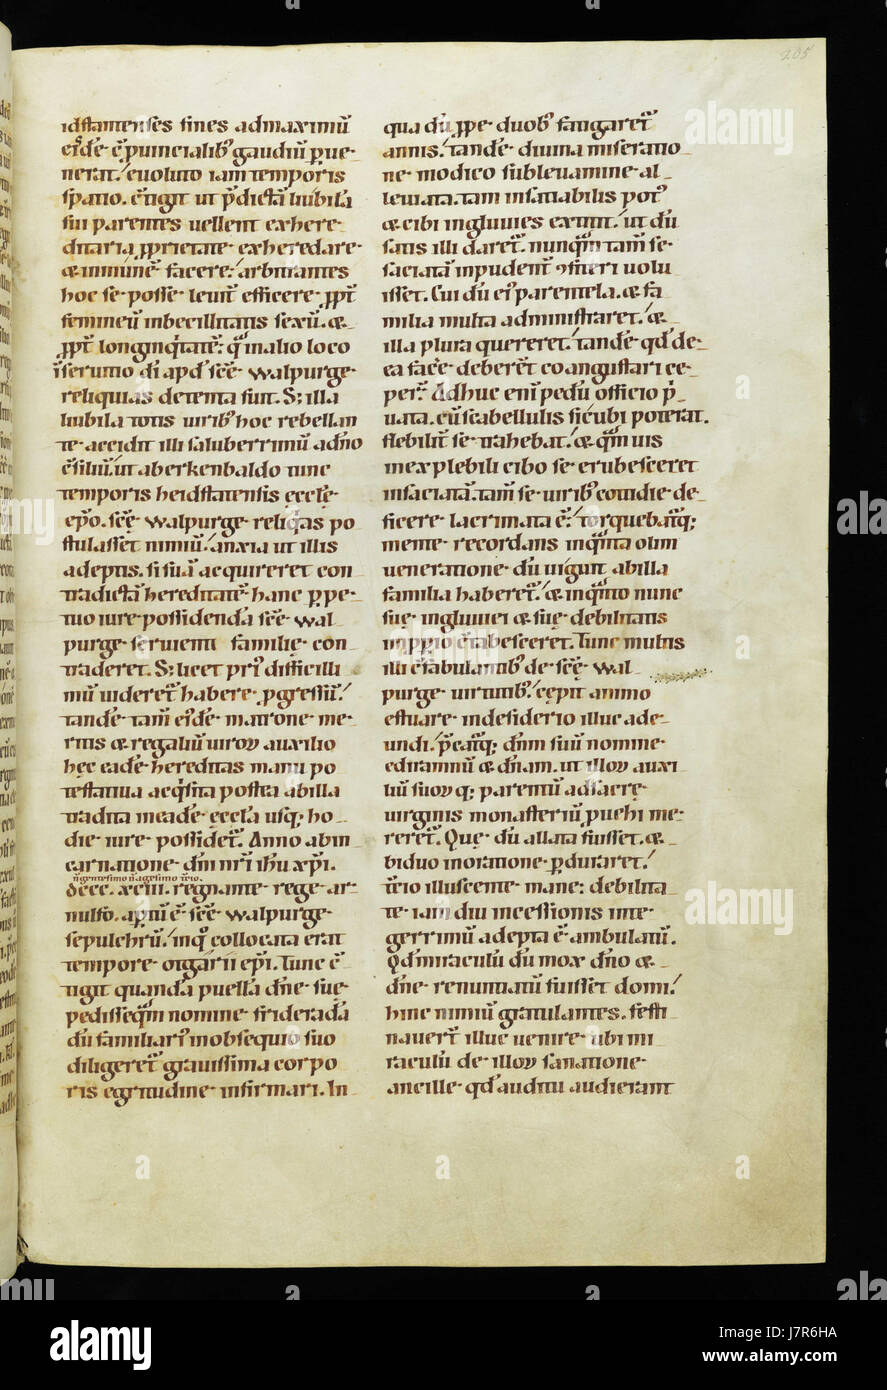 205
idstamenses fines admaximū
eiꝰdē ꝓuincialibꝰ gaudiū ꝑue-
nerat. euoluto iam temporis
spatio. ctigit ut p̄dictā liubilā
sui parentes uellent exhere-
ditaria ꝓprietate exheredare
& immunē facere. arbitrantes
hoc se posse leuit̄ efficere ꝓpt̄
femineū inbecillitatis sexū. &
ꝓpt̄ longinq̇tatē. q̇ inalio loco
seruitio di apd̄ scē walpurge
reliquias detenta sit. S; illa
liubila totis uiribꝰ hoc rebellan
te accidit illi saluberrimū adn̄o
csiliū. ut aberkenbaldo tunc
temporis heidstatensis eccłe
ep̄o. scē walpurge reliq̇as po
stulasset nimiū anxia ut illis
adeptis. si suā acquireret con
tradictā hereditatē hanc ꝑpe
tuo iure possidendā scē wal
purge seruienti familie con
traderet. S; licet pri difficilli
mū uideret̄ habere ꝓgressū.
tandē tam̄ eiꝰdē matrone me-
ritis & regaliū uiroꝝ auxilio
hec eadē hereditas manu po
testatiua acq̇sita postea abilla
tradita meadē eccła usq; ho
die iure possidet̄. Anno abin
carnatione dn̄i nr̄i ihū xp̄i.
n̄gentesimo n̄agesimo t̄cio.
dccc. xciii. regnante rege ar-
nulfo. aꝑtū ē scē walpurge
sepulchrū. inq̇ collocata erat
tempore otgarii ep̄i. Tunc c̄
tigit quandā puellā dn̄e suę
pedisseq̄m nomine friderada
dū familiariꝰ inobsequio suo
diligeret̄ grauissima corpo
ris egritudine infirmari. In
qua dū ꝓpe duobꝰ fatigaret̄
annis. tandē diuina miseratio
ne modico subleuamine al
leuiata. tam insatiabilis potꝰ
& cibi ingluuies extitit. ut dū
satis illi daret̄. nunq̄m tam̄ se
saciatā inpudent̄ ꝯfiteri uolu
isset. Cui dū eiꝰ parentela. & fa
milia multa administraret. &
illa plura quereret. tandē qd̄ de
ea facē deberet̄ coangustari ce-
per̄. Adhuc eni pedū officio p̄
uata. cū scabellulis sicubi poterat.
flebilit̄ se trahebat. & q̄muis
inexplebili cibo se erubesceret
insaciatā. tam̄ se uiribꝰ cotidie de-
ficere lacrimata ē. torquebatq̇;
mente recordans inq̇nta olim
ueneratione dū uiguit abilla
familia haberet̄. & inq̇nto nunc
suę ingluuiei & suę debilitatis
inppio ctabesceret. Tunc multis
illi csabulantibꝰ de scē wal
purge uirtutibꝰ. cepit animo
estuare indesiderio illuc ade-
undi. p̄catq̇; dn̄m suū nomine
ediramnū & dn̄am. ut illoꝝ auxi
liū suoꝝ q; parentū adsacre
uirginis monasteriū puehi me-
reret̄. Que dū allata fuisset. &
biduo inoratione ꝑduraret.
t̄cio illuscente mane. debilita
te iam diu incessionis inte-
gerrimū adepta ē ambulatū.
Qd̄ miraculū dū mox dn̄o &
dn̄e renuntiatū fuisset domi.
hinc nimiū gratulantes. festi
nauert̄ illuc uenire ubi mi
raculū de illoꝝ sanatione
ancille qd̄ auditu audierant
alamy
www.alamy.com
Image ID: J7R6HA